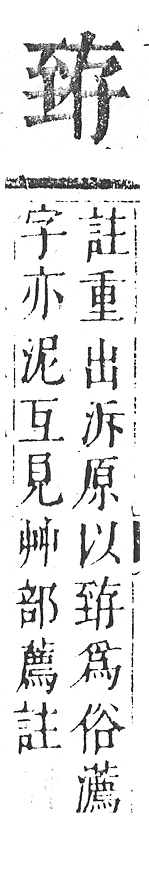 臶
註重出泝原以臶爲俗瀳
字亦泥互見艸部薦註